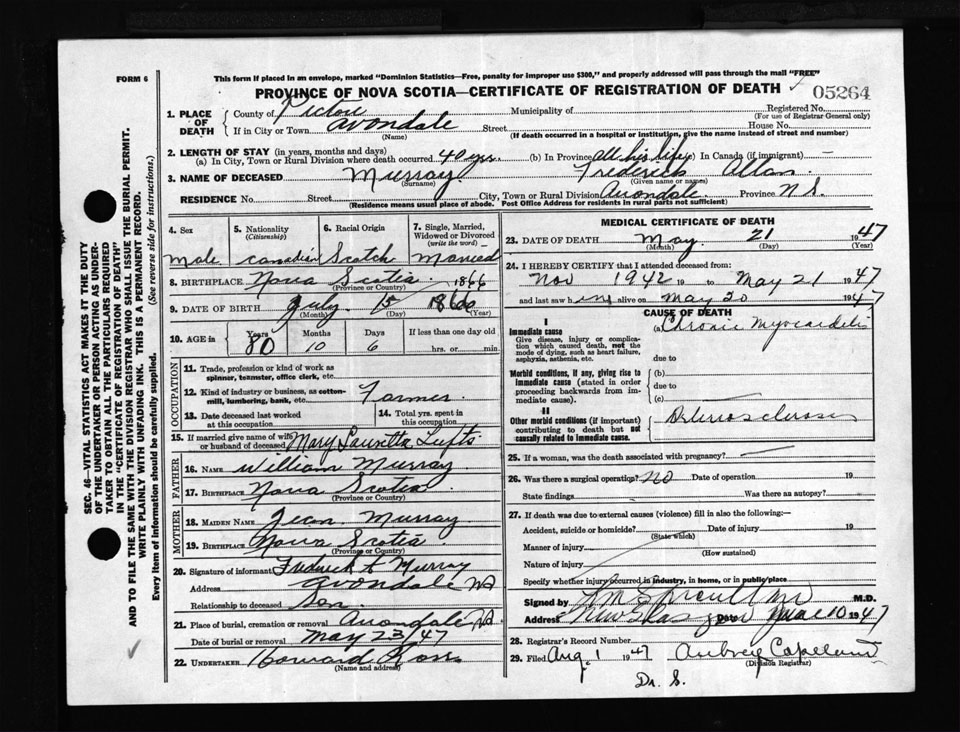 FORM 6
This form if placed in an envelope, marked "Dominion Statistics—Free, penalty for improper use $300," and properly addressed will pass through the mail "FREE"
PROVINCE OF NOVA SCOTIA—CERTIFICATE OF REGISTRATION OF DEATH 05264
1. PLACE OF DEATH County of Pictou Municipality of Registered No. (For use of Registrar General only)
If in City or Town Avondale Street House No.
(Name) (If death occurred in a hospital or institution, give the name instead of street and number)
2. LENGTH OF STAY (in years, months and days)
(a) In City, Town or Rural Division where death occurred 40 yrs. (b) In Province All his life In Canada (if immigrant) —
3. NAME OF DECEASED Murray Frederick Allan
(Surname) (Given name or names)
RESIDENCE No. Street City, Town or Rural Division Avondale Province N.S.
(Residence means usual place of abode. Post Office Address for residents in rural parts not sufficient)
SEC. 46—VITAL STATISTICS ACT MAKES IT THE DUTY
OF THE UNDERTAKER OR PERSON ACTING AS UNDER-
TAKER TO OBTAIN ALL THE PARTICULARS REQUIRED
IN THE "CERTIFICATE OF REGISTRATION OF DEATH"
AND TO FILE THE SAME WITH THE DIVISION REGISTRAR WHO SHALL ISSUE THE BURIAL PERMIT.
WRITE PLAINLY WITH UNFADING INK. THIS IS A PERMANENT RECORD.
Every item of information should be carefully supplied. (See reverse side for instructions.)
4. Sex 5. Nationality (Citizenship) 6. Racial Origin 7. Single, Married, Widowed or Divorced (write the word)
Male Canadian Scotch Married
8. BIRTHPLACE Nova Scotia 1866
(Province or Country)
9. DATE OF BIRTH July 15 1866
(Month) (Day) (Year)
10. AGE in Years Months Days If less than one day old
80 10 6 hrs. or min.
OCCUPATION
11. Trade, profession or kind of work as spinner, teamster, office clerk, etc.
12. Kind of industry or business, as cotton-mill, lumbering, bank, etc. Farmer
13. Date deceased last worked at this occupation 14. Total yrs. spent in this occupation
15. If married give name of wife or husband of deceased Mary Lauretta Tufts
FATHER
16. NAME William Murray
17. BIRTHPLACE Nova Scotia
(Province or Country)
MOTHER
18. MAIDEN NAME Jean Murray
19. BIRTHPLACE Nova Scotia
(Province or Country)
20. Signature of informant Fredrick A Murray
Address Avondale NS
Relationship to deceased Son
21. Place of burial, cremation or removal Avondale NS
Date of burial or removal May 23/47
22. UNDERTAKER Howard Ross
(Name and address)
MEDICAL CERTIFICATE OF DEATH
23. DATE OF DEATH May 21 1947
(Month) (Day) (Year)
24. I HEREBY CERTIFY that I attended deceased from:
Nov 1942 19 to May 21 1947
and last saw him alive on May 20 1947
CAUSE OF DEATH
I
Immediate cause (a) Chronic Myocarditis
Give disease, injury or complication which caused death, not the mode of dying, such as heart failure, asphyxia, asthenia, etc. due to
Morbid conditions, if any, giving rise to immediate cause (stated in order proceeding backwards from immediate cause). (b)
due to
(c)
II
Other morbid conditions (if important) contributing to death but not causally related to immediate cause. Arteriosclerosis
25. If a woman, was the death associated with pregnancy? —
26. Was there a surgical operation? No Date of operation 19
State findings Was there an autopsy?
27. If death was due to external causes (violence) fill in also the following:—
Accident, suicide or homicide? Date of injury 19
(State which)
Manner of injury
(How sustained)
Nature of injury
Specify whether injury occurred in industry, in home, or in public place
Signed by M.D.
Address New Glasgow Date June 10 1947
28. Registrar's Record Number
29. Filed Aug. 1 1947 Aubrey
(Division Registrar)
Dr. S.